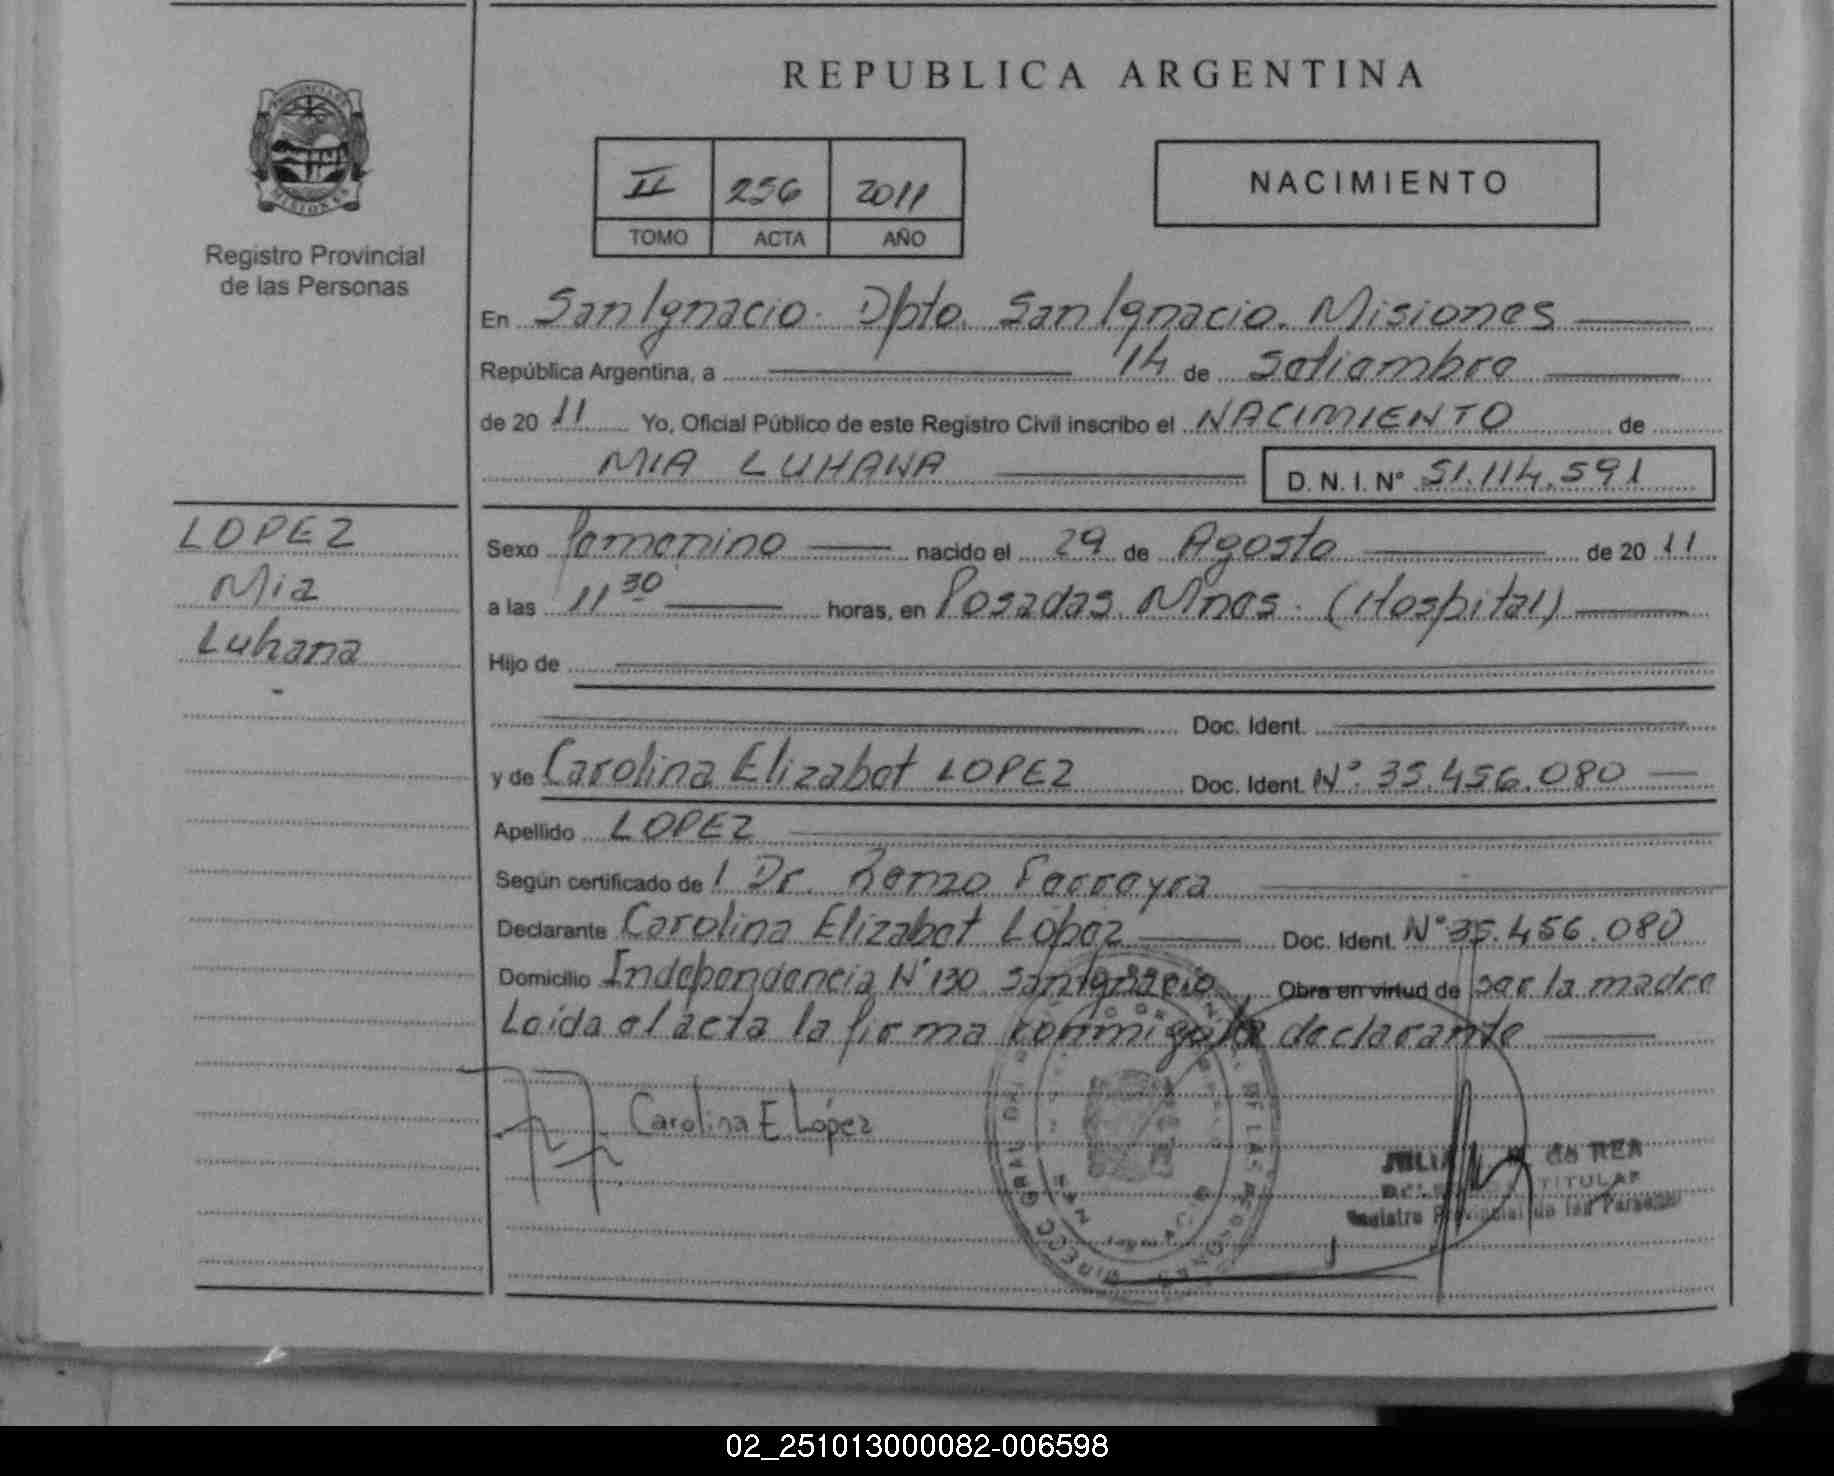 REPUBLICA ARGENTINA
PROVINCIA DE
MISIONES
Registro Provincial
de las Personas
II 256 2011
TOMO ACTA AÑO
NACIMIENTO
En San Ignacio. Dpto. San Ignacio. Misiones
República Argentina, a 14 de Setiembre
de 20 11 Yo, Oficial Público de este Registro Civil inscribo el NACIMIENTO de
MIA LUHANA D. N. I. Nº 51.114.591
LOPEZ
Mia
Luhana
Sexo femenino nacido el 29 de Agosto de 20 11
a las 11 30 horas, en Posadas. Mnes. (Hospital)
Hijo de
Doc. Ident.
y de Carolina Elizabet LOPEZ Doc. Ident. Nº. 35.456.080
Apellido LOPEZ
Según certificado de l Dr. Renzo Ferreyra
Declarante Carolina Elizabet López Doc. Ident. Nº 35.456.080
Domicilio Independencia Nº 130 San Ignacio Obra en virtud de ser la madre
Leída el acta la firma conmigo la declarante
Carolina E López
TITULAR
Registro Provincial de las Personas
02_251013000082-006598